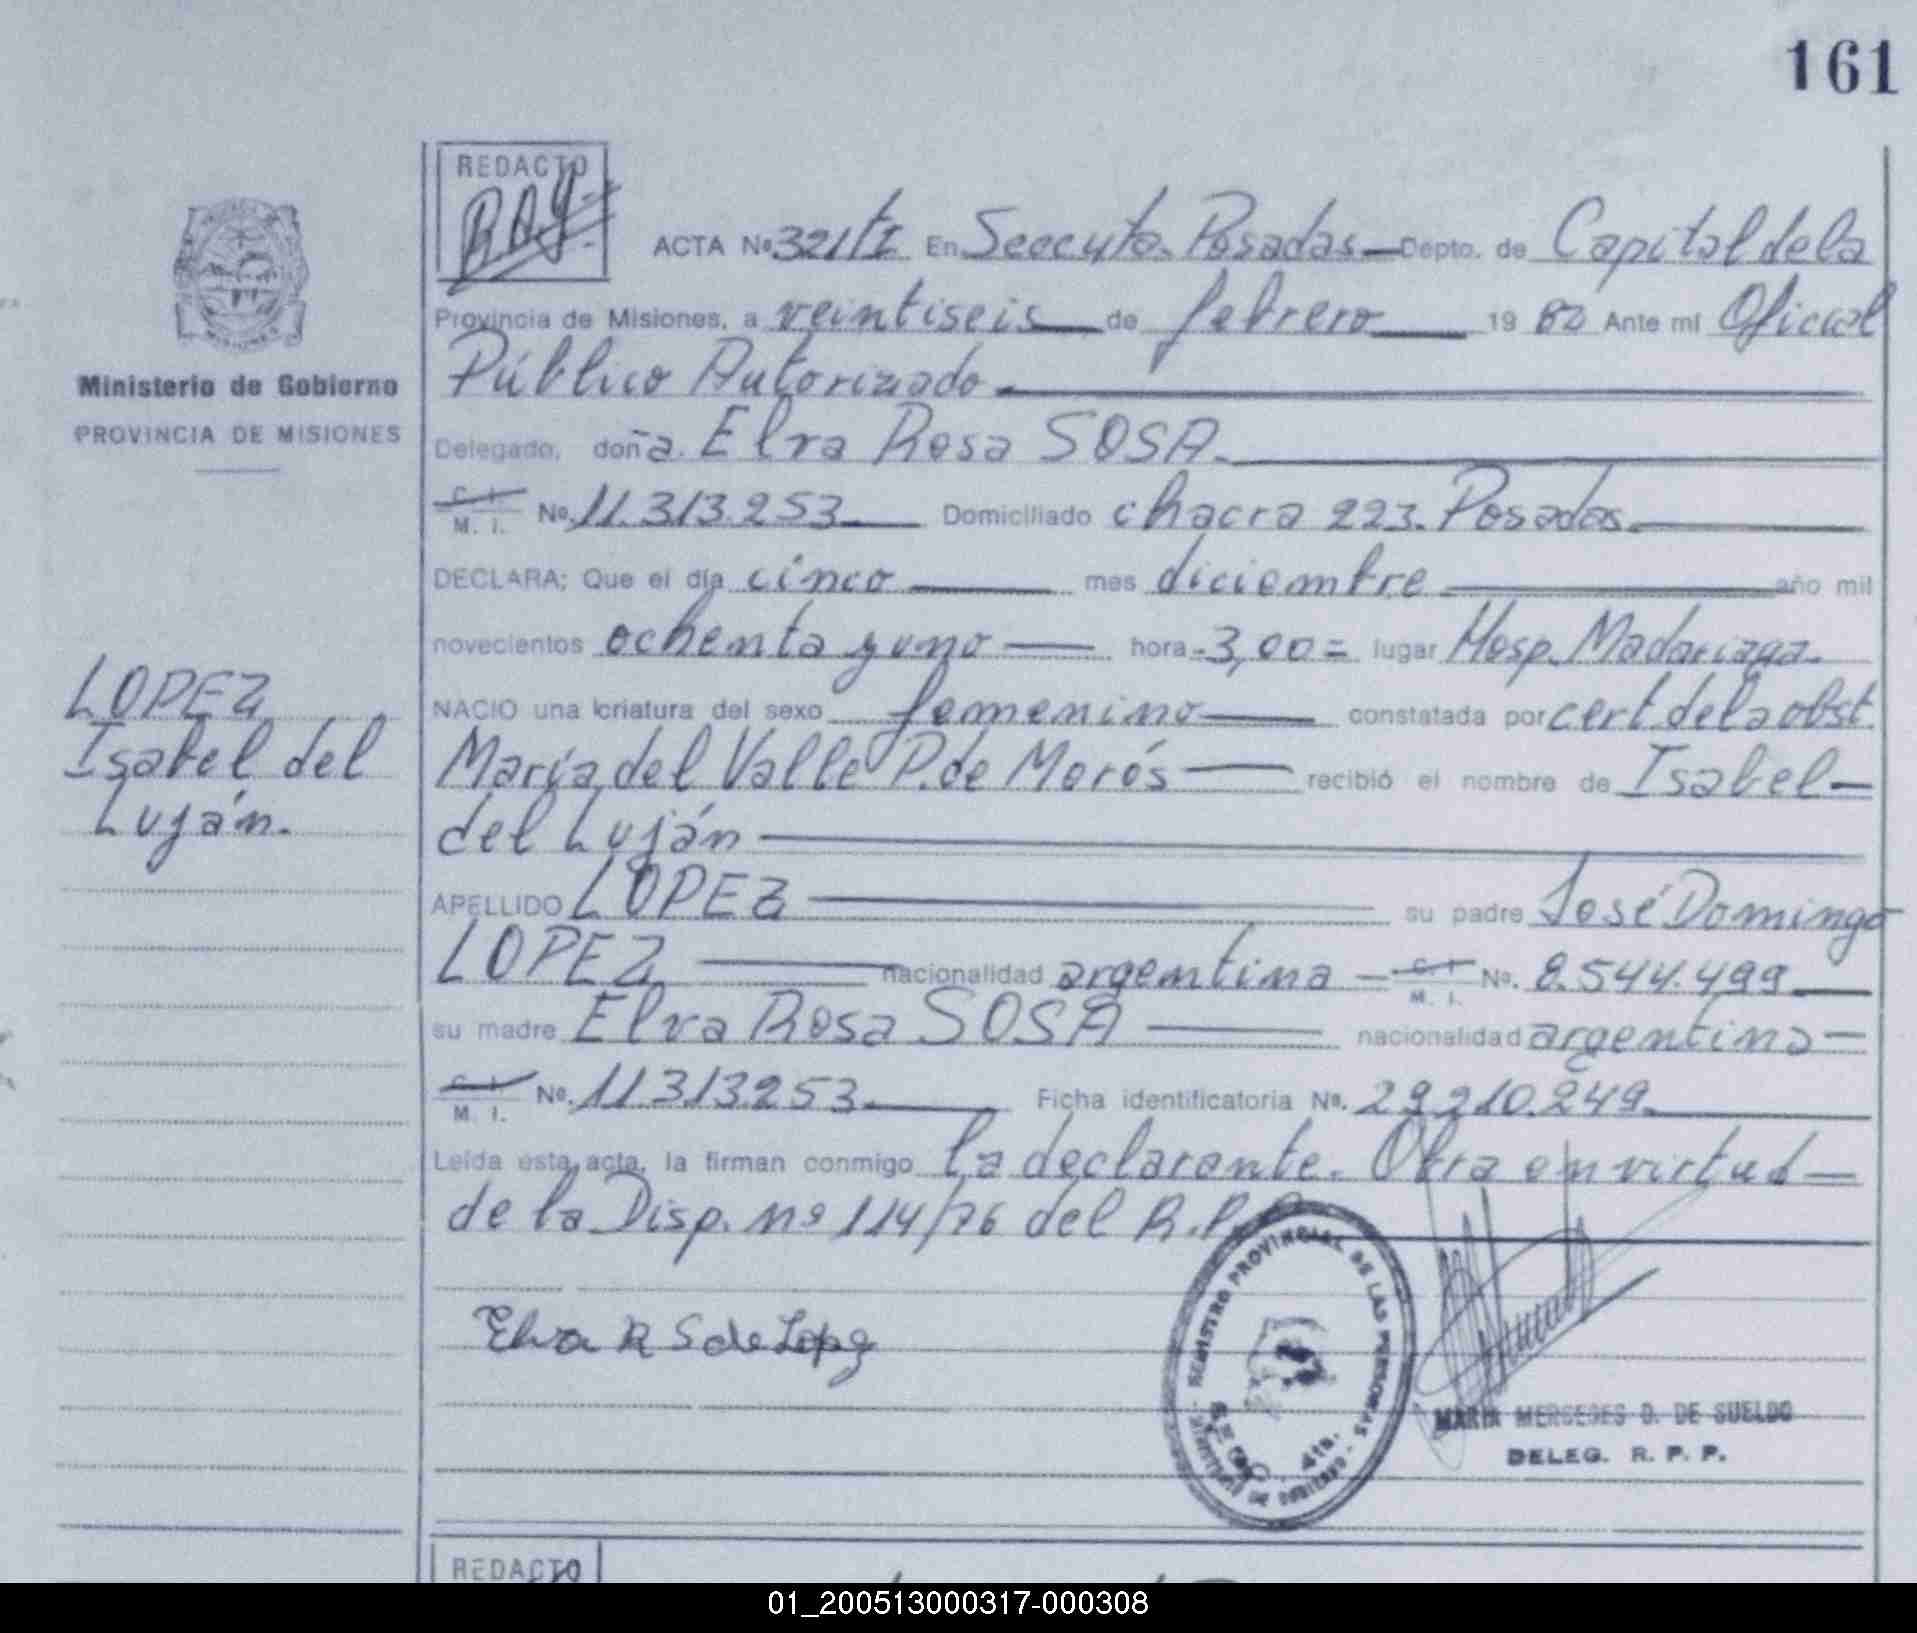 161
REDACTO
ACTA Nº 321/I En Seccyto. Posadas — Depto. de Capital de la
Provincia de Misiones, a veintiseis de febrero 19 82 Ante mí Oficial
Público Autorizado
Ministerio de Gobierno
PROVINCIA DE MISIONES
Delegado, doña. Elva Rosa SOSA.
C. I. M. I. Nº. 11.313.253 Domiciliado chacra 223. Posadas.
DECLARA: Que el día cinco mes diciembre año mil
novecientos ochenta y uno hora -3,00= lugar Hosp. Madariaga.
LOPEZ
Isabel del
Luján.
NACIO una criatura del sexo femenino constatada por cert de la obst.
María del Valle P. de Morós recibió el nombre de Isabel
del Luján
APELLIDO LOPEZ su padre José Domingo
LOPEZ nacionalidad argentina C. I. M. I. Nº. 8.544.499
su madre Elva Rosa SOSA nacionalidad argentina
C. I. M. I. Nº. 11.313.253 Ficha identificatoria Nº. 29.210.249.
Leída esta acta, la firman conmigo la declarante. Obra en virtud
de la Disp. nº 114/76 del R.P.P.
Elva R S de Lopez
REGISTRO PROVINCIAL DE LAS PERSONAS
MARIA MERCEDES D. DE SUELDO
DELEG. R. P. P.
REDACTO
01_200513000317-000308